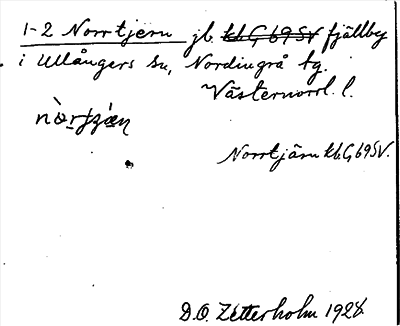 1-2 Norrtjern jb. kb G, 69 SV fjällby
i Ullångers sn, Nordingrå tg.
Västernorrl. l.
Norrtjärn kb. G, 69 SV.
D.O. Zetterholm 1928